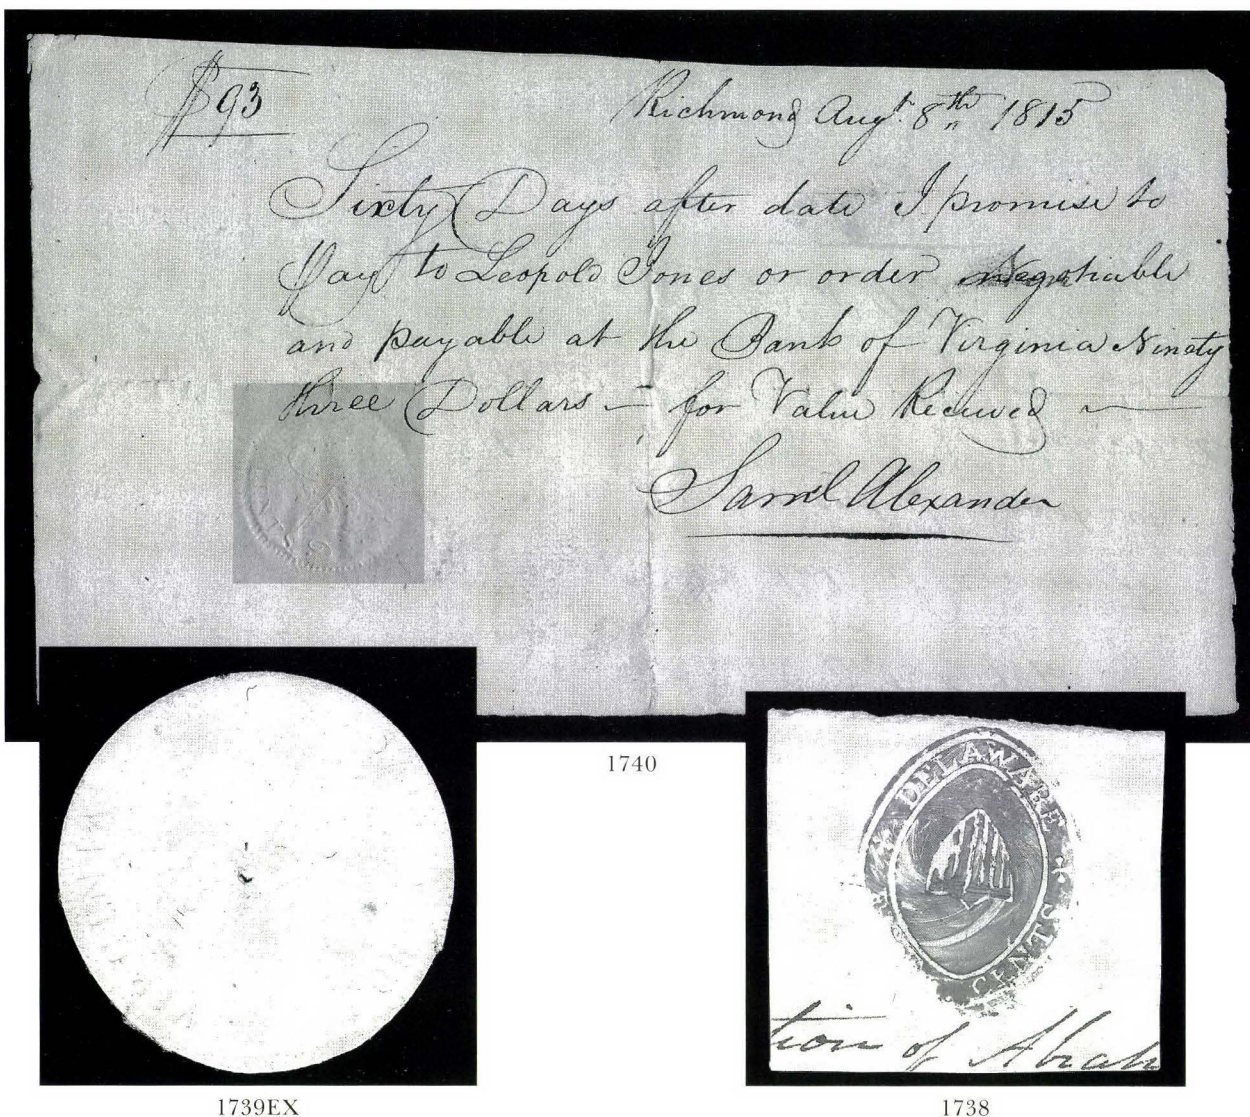 $93
Richmond Augt. 8th 1815
Sixty Days after date I promise to
pay to Leopold Jones or order Negotiable
and payable at the Bank of Virginia Ninety
three Dollars — for Value Received —
Saml Alexander
1740
DELAWARE
CENTS
tion of Abrah
1739EX
1738